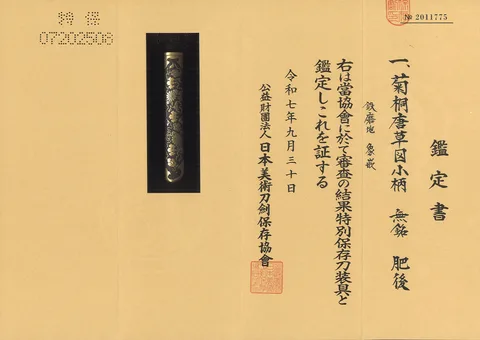 № 2011775
鑑定書
一、菊桐唐草図小柄 無銘 肥後
鉄磨地 象嵌
右は當協會に於て審査の結果特別保存刀装具と
鑑定しこれを証する
令和七年九月三十日
公益財團法人日本美術刀剣保存協會
特保
07202508